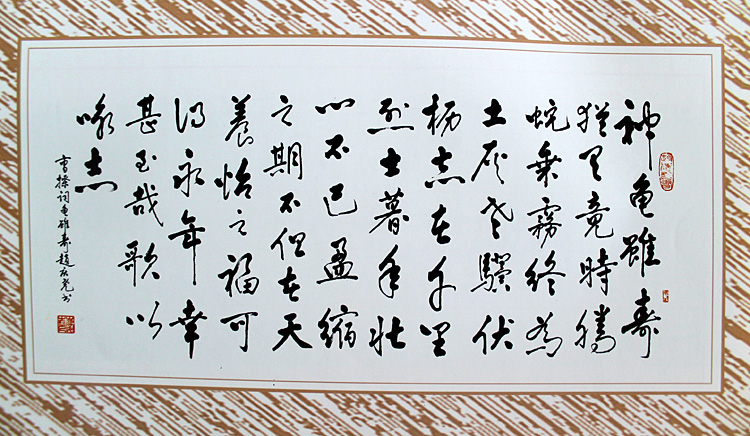 神龟雖寿
猶有竟時騰
蛇乘霧終為
土灰老驥伏
枥志在千里
烈士暮年壯
心不已盈縮
之期不但在天
養怡之福可
得永年幸
甚至哉歌以
咏志
曹操詞龟雖寿趙